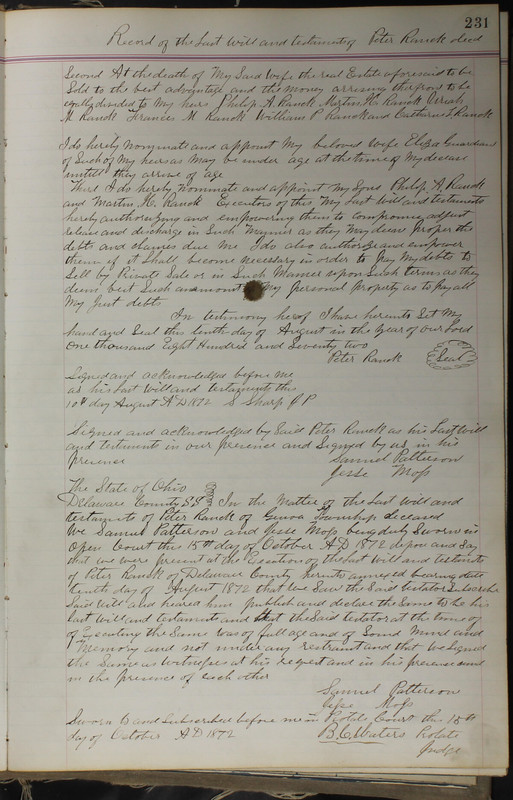 231
Record of the Last Will and testament of Peter Ranck decd
Second At the death of My Said Wife the real Estate aforesaid to be
Sold to the best advantage and the money arrising therefrom to be
equally divided to My heirs Philip. A. Ranck Martin. H. Ranck
M Ranck Frances M Ranck William P Ranck and Catharine S Ranck
I do hereby Nominate and appoint My beloved Wife Eliza Guardian
of Such of My heirs as May be under age at the time of My decease
untill they arrive of age
Third I do hereby Nominate and appoint My Sons Philip. A. Ranck
and Martin. H. Ranck Executors of this My Last Will and testament
hereby authorizing and empowering them to compromise adjust
release and discharge in Such Manner as they May deem proper the
debts and claimes due Me I do also authorize and empower
them if it Shall become necessary in order to pay My debts to
Sell by Private Sale or in Such Manner upon Such terms as they
deem best Such an amount of My personal property as to pay all
My Just debts
In testimony hereof I have hereunto Set My
hand and Seal this tenth day of August in the Year of our Lord
One thousand Eight Hundred and Seventy two
Peter Ranck Seal
Signed and acknowledged before me
as his Last Will and testament this
10th day August AD 1872 S Sharp JP
Signed and acknowledged by Said Peter Ranck as his Last Will
and testament in our presence and Signed by us in his
presence Samuel Patterson
Jesse Moss
The State of Ohio
Delaware County SS In the Matter of the Last Will and
testament of Peter Ranck of Genoa Township deceased
We Samuel Patterson and Jesse Moss being duly Sworn in
Open Court this 15th day of October AD 1872 depose and Say
that we were present at the Execution of the Last Will and testament
of Peter Ranck of Delaware County hereunto annexed bearing date
tenth day of August 1872 that we Saw the Said testator Subscribe
Said Will and heared him publish and declare the Same to be his
last Will and testament and that the Said testator at the time of
of Executing the Same was of full age and of Sound Mind and
Memory and not under any restraint and that we Signed
the Same as Witnesses at his request and in his presence and
in the presence of each other
Samuel Patterson
Jesse Moss
Sworn to and Subscribed before me in Probate Court this 15th
day of October AD 1872 B. C. Waters Probate
Judge